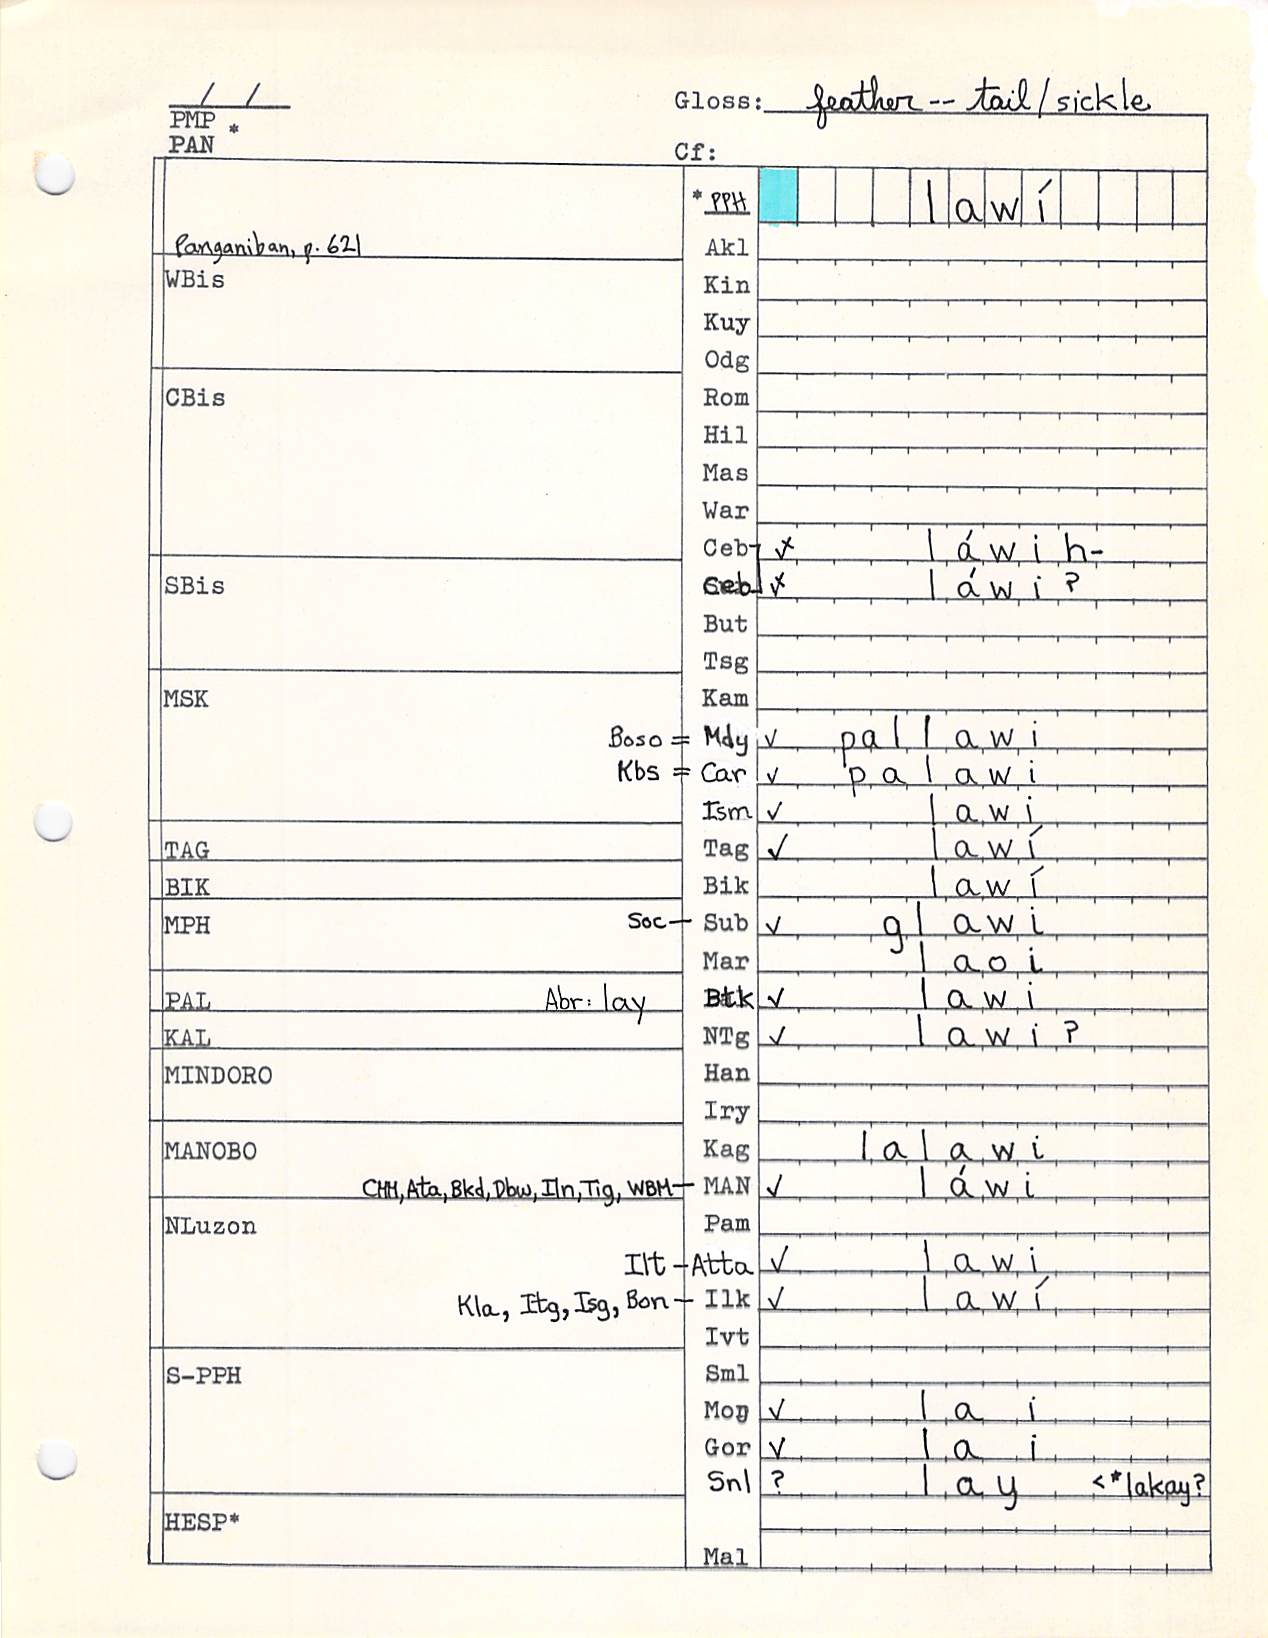 / /
Gloss: feather -- tail/sickle
PMP *
PAN
Cf:
* PPH lawí
Panganiban, p. 621
Akl
WBis
Kin
Kuy
Odg
CBis
Rom
Hil
Mas
War
Ceb láwih-
SBis
Ceb láwi?
But
Tsg
MSK
Kam
Boso = Mdy ✓ pallawi
Kbs = Car ✓ palawi
Ism ✓ lawi
TAG
Tag ✓ lawí
BIK
Bik lawí
MPH
Soc - Sub ✓ glawi
Mar laoi
PAL
Abr: lay
Btk ✓ lawi
KAL
NTg ✓ lawi?
MINDORO
Han
Iry
MANOBO
Kag lalawi
CHM, Ata, Bkd, Dbw, Iln, Tig, WBM - MAN ✓ láwi
NLuzon
Pam
Ilt - Atta ✓ lawi
Kla, Itg, Isg, Bon - Ilk ✓ lawí
Ivt
S-PPH
Sml
Mon ✓ la i
Gor ✓ la i
Snl ? lay <*lakay?
HESP*
Mal